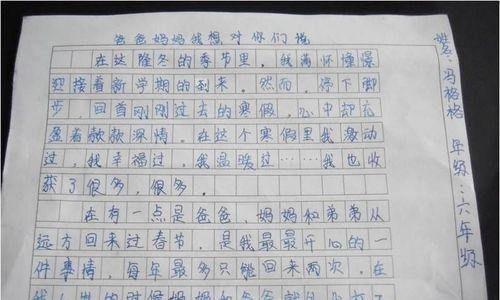 爸爸妈妈我想对你们说
在这隆冬的季节里，我满怀憧憬
迎接着新学期的到来。然而，停下脚
步，回首刚刚过去的寒假，心中却充
盈着款款深情。在这个寒假里我激动
过，我幸福过，我温暖过……我也收
获了很多，很多。
在有一点是爸爸、妈妈和弟弟从
远方回来过春节，是我最最开心的一
件事情，每年最多只能回来两次，在
的时候妈妈和爸爸就
冯格格 年级：六年级